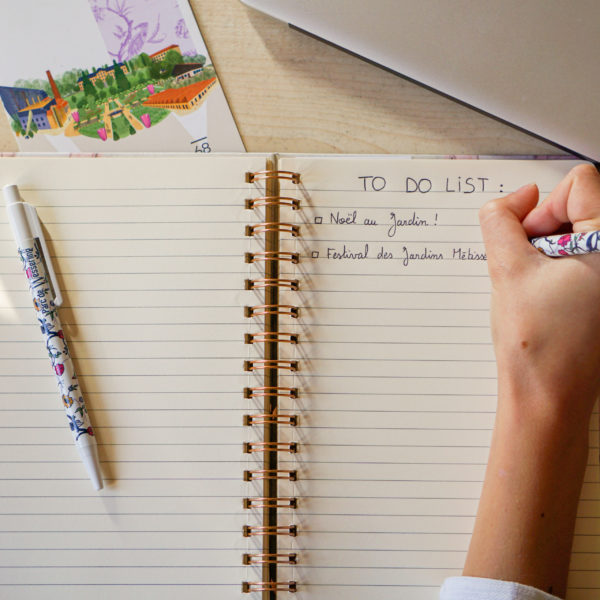 48
TO DO LIST :
Noël au Jardin !
Festival des Jardins Métisse